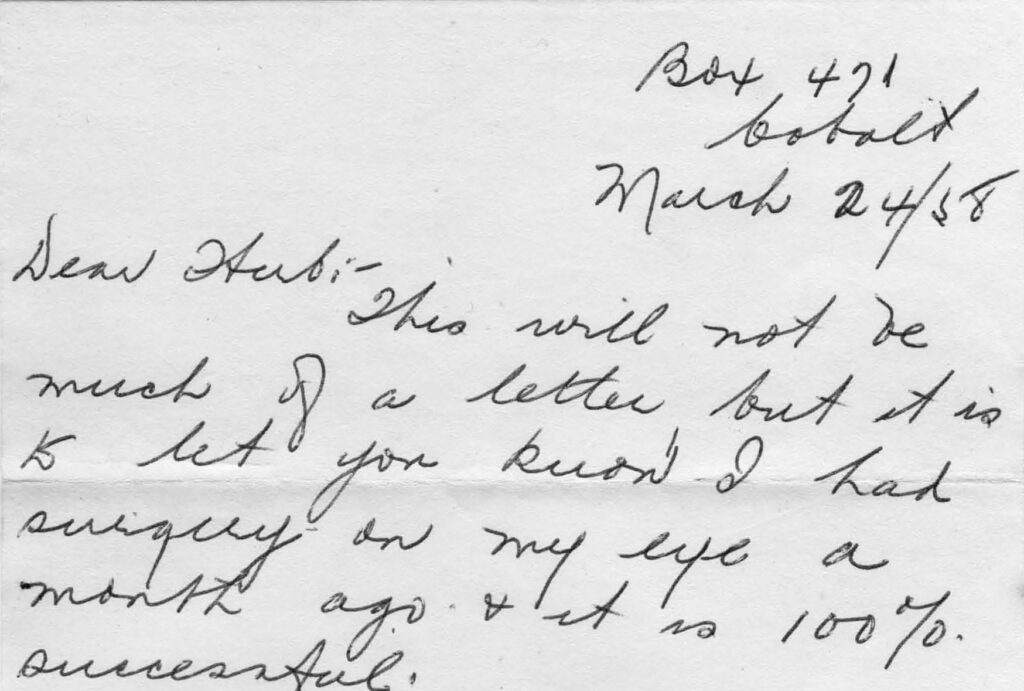 Box 471
Cobalt
March 24/58
Dear Herb:-
This will not be
much of a letter but it is
to let you know I had
surgery on my eye a
month ago & it is 100%
successful.